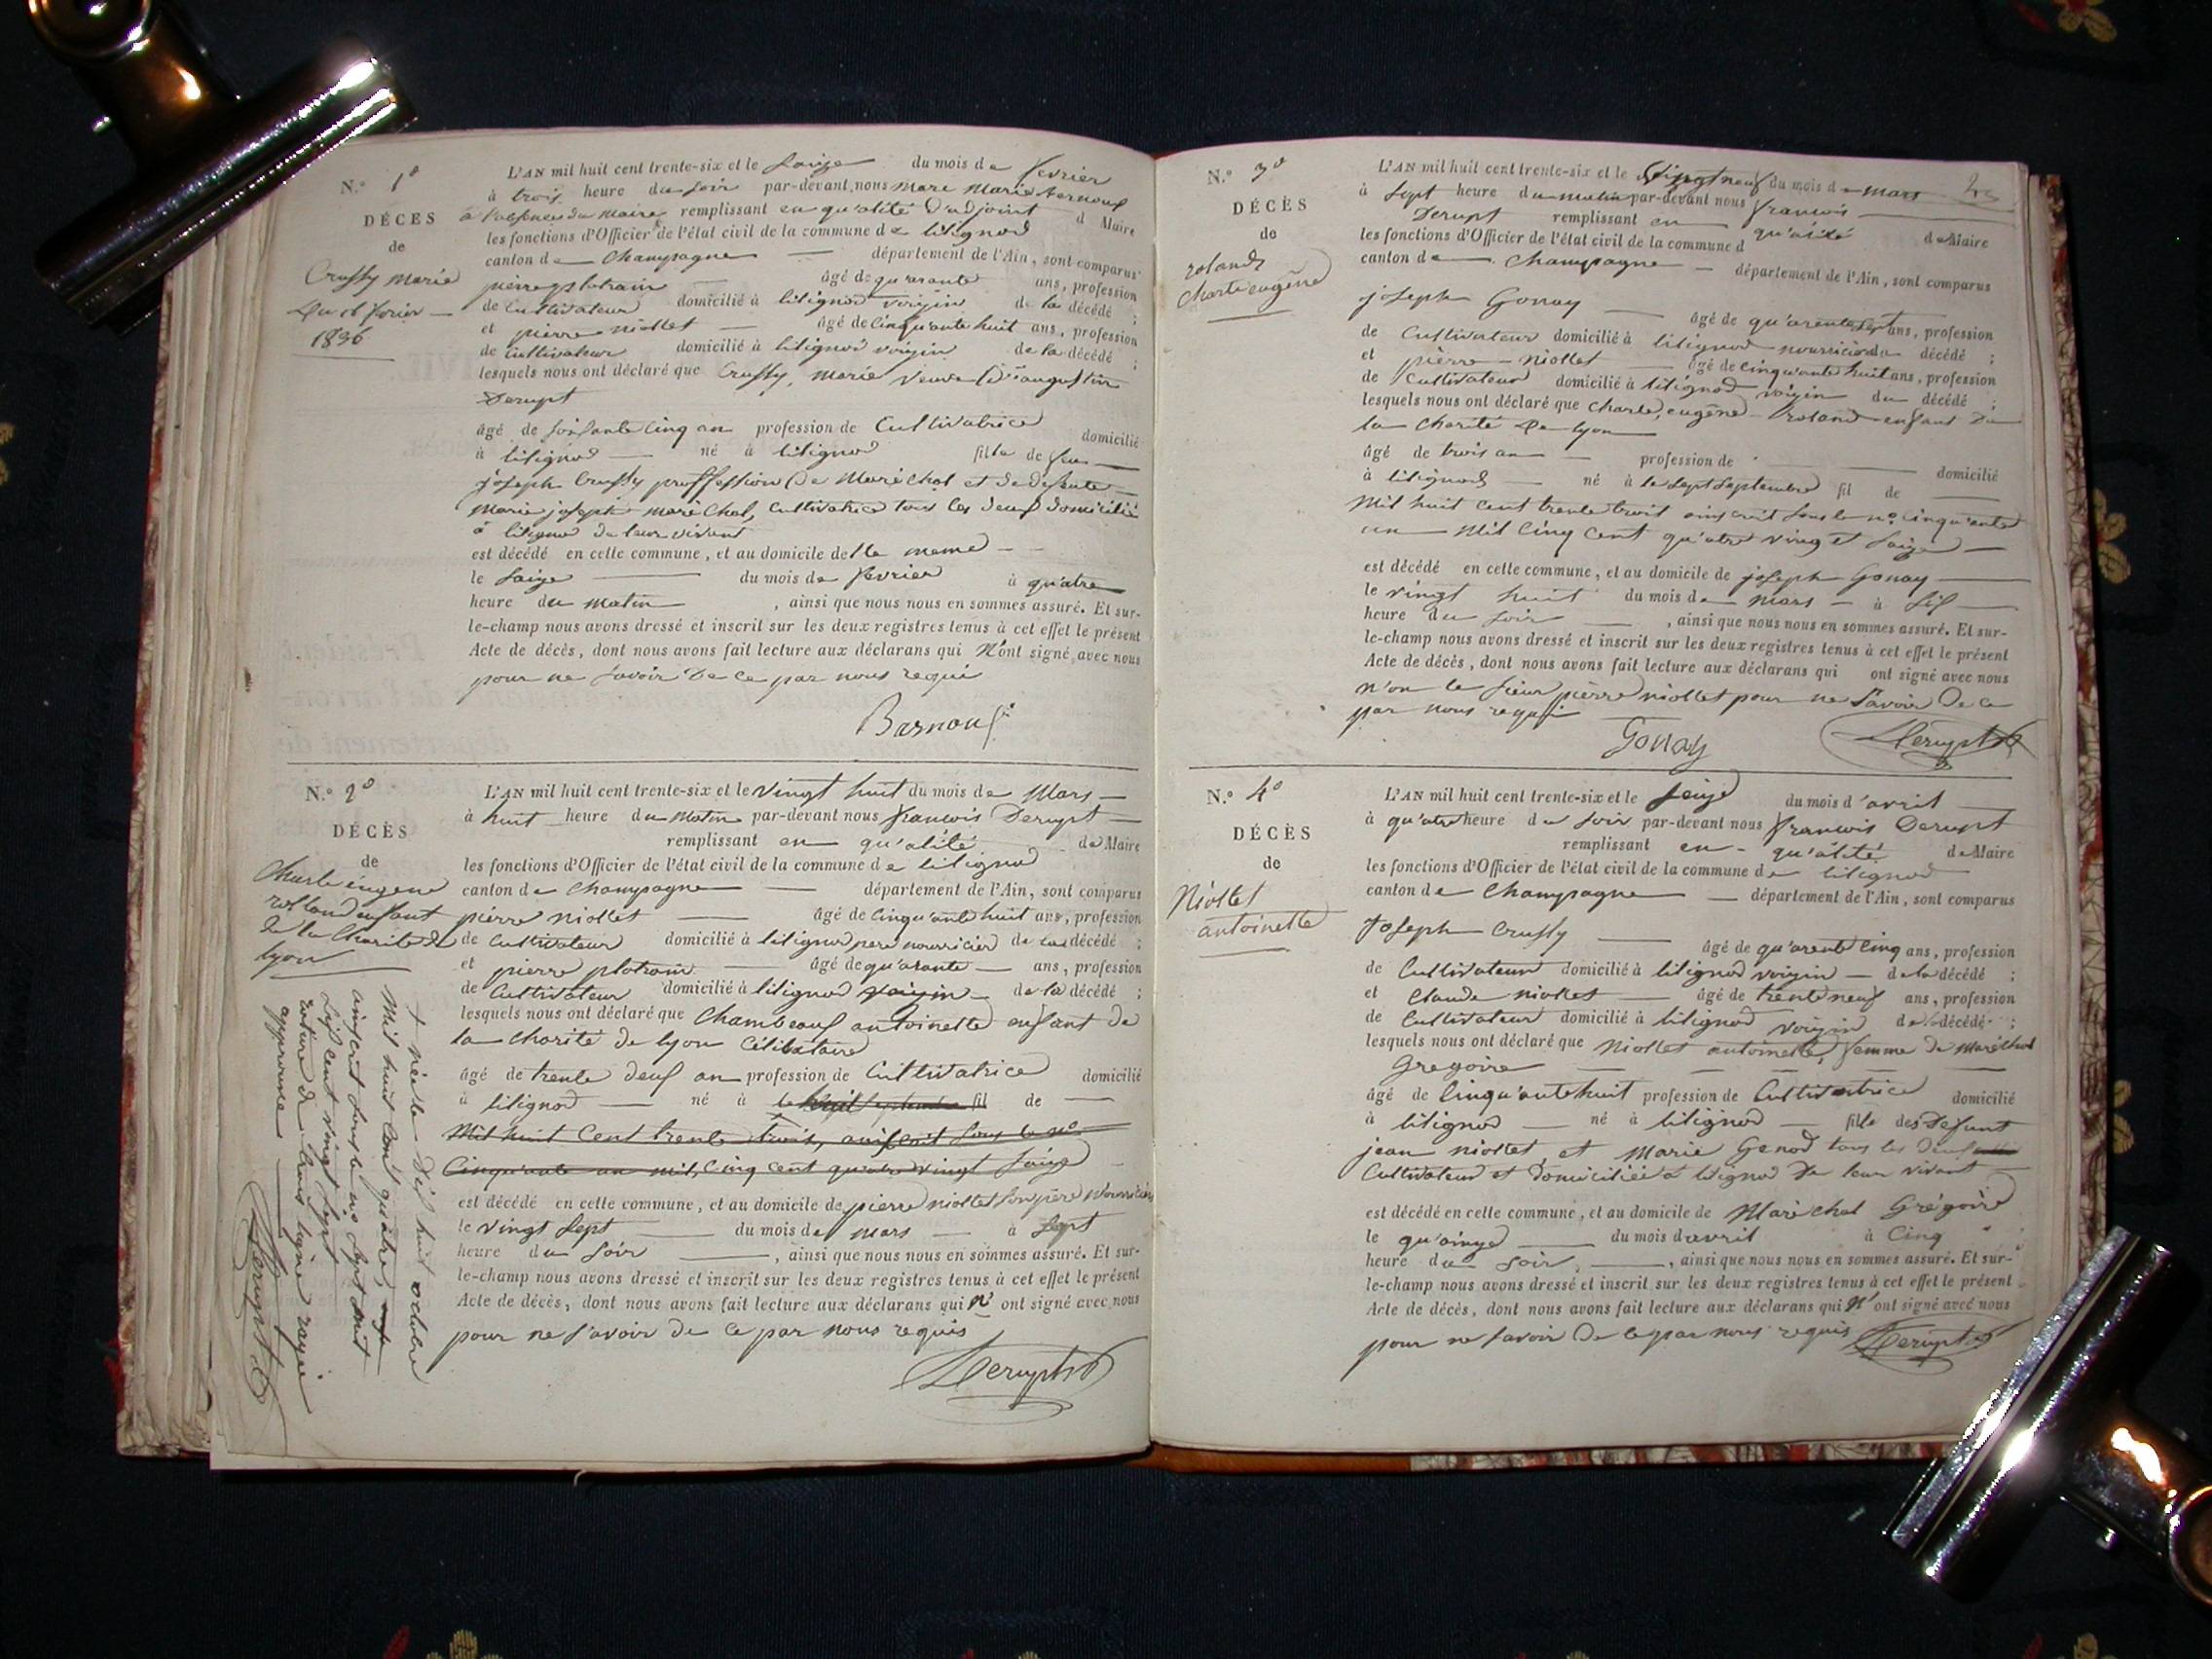 N.° 1°
DÉCES
de
Crussy marie
Du 16 fevrier
1836
L'AN mil huit cent trente-six et le saize du mois de fevrier
à trois heure du soir par-devant nous mare marie Bernouf
à l'absence du maire remplissant en qu'alité d'adjoint d Maire
les fonctions d'Officier de l'état civil de la commune de litignod
canton de Champagne département de l'Ain, sont comparus
pierre plotrain âgé de quarante ans, profession
de Cultivateur domicilié à litignod voizin de la décédé ;
et pierre niollet âgé de cinqu'ante huit ans, profession
de Cultivateur domicilié à litignod voizin de la décédé ;
lesquels nous ont déclaré que Crussy, marie veuve augustin
Derupt
âgé de soissante cinq an profession de Cultivatrice domicilié
à litignod né à litignod fille de feu
joseph Crussy proffession de Maréchal et de defunte
Marie joseph maréchal, cultivatrice tous les deux domicilié
à litignod de leur vivant
est décédé en cette commune, et au domicile de lle meme
le saize du mois de fevrier à quatre
heure du matin , ainsi que nous nous en sommes assuré. Et sur-
le-champ nous avons dressé et inscrit sur les deux registres tenus à cet effet le présent
Acte de décès, dont nous avons fait lecture aux déclarans qui N'ont signé avec nous
pour ne savoir De ce par nous requi
Barnouf
N.° 2°
DÉCÈS
de
Charle éugene
rolland enfant
de la Charité de
lyon
L'AN mil huit cent trente-six et le vingt huit du mois de Mars
à huit heure du matin par-devant nous francois Derupt
remplissant en qu'alité de Maire
les fonctions d'Officier de l'état civil de la commune de litignod
canton de Champagne département de l'Ain, sont comparus
pierre niollet âgé de cinqu'ante huit ans, profession
de Cultivateur domicilié à litignod pere nourricier de la décédé ;
et pierre plotrain âgé de qu'arante ans, profession
de Cultivateur domicilié à litignod voizin de la décédé ;
lesquels nous ont déclaré que Chambeauf antoinette enfant de
la charité de lyon Célibataire
âgé de trente deux an profession de Cultivatrice domicilié
à litignod né à le sept septembre fil de
Mil huit Cent trente trois, ainscrit sous le n°
Cinqu'ante un mil, Cinq cent quatre vingt saize
est décédé en cette commune, et au domicile de pierre niollet son père Nourricier
le vingt sept du mois de mars à sept
heure du soir , ainsi que nous nous en sommes assuré. Et sur-
le-champ nous avons dressé et inscrit sur les deux registres tenus à cet effet le présent
Acte de décès, dont nous avons fait lecture aux déclarans qui N' ont signé avec nous
pour ne savoir de ce par nous requis
Derupt
+ née le dix huit octobre
Mil huit Cent quatre,
ainscrit sous le n° sept mil
six cent vingt sept
rature de trois ligne rayée
approuvée
Derupt
N.° 3°
DÉCÈS
de
roland
Charle eugène
L'AN mil huit cent trente-six et le Vingt neuf du mois de mars
à sept heure du matin par-devant nous francois
Derupt remplissant en qu'alité de Maire
les fonctions d'Officier de l'état civil de la commune d
canton de Champagne département de l'Ain, sont comparus
joseph Gonay âgé de qu'arente sept ans, profession
de Cultivateur domicilié à litignod nourricier du décédé ;
et pierre niollet âgé de cinqu'ante huit ans, profession
de Cultivateur domicilié à litignod voizin du décédé ;
lesquels nous ont déclaré que Charle, eugène roland enfant De
la Charité De lyon
âgé de trois an profession de domicilié
à litignod né à le sept septembre fil de
Mil huit cent trente trois ainscrit sous le n° Cinqu'ante
un Mil Cinq Cent qu'atre vingt saize
est décédé en cette commune, et au domicile de joseph Gonay
le vingt huit du mois de mars à six
heure du soir , ainsi que nous nous en sommes assuré. Et sur-
le-champ nous avons dressé et inscrit sur les deux registres tenus à cet effet le présent
Acte de décès, dont nous avons fait lecture aux déclarans qui ont signé avec nous
n'on le sieur pierre niollet pour ne savoir De ce
par nous requi
Gonay
Derupt
N.° 4°
DÉCÈS
de
Niollet
antoinette
L'AN mil huit cent trente-six et le seize du mois d'avril
à qu'atre heure du soir par-devant nous francois Derupt
remplissant en qu'alité de Maire
les fonctions d'Officier de l'état civil de la commune de litignod
canton de Champagne département de l'Ain, sont comparus
Joseph Crussy âgé de qu'arente cinq ans, profession
de Cultivateur domicilié à litignod voizin de la décédé ;
et Claude niollet âgé de trente neuf ans, profession
de Cultivateur domicilié à litignod voizin de la décédé ;
lesquels nous ont déclaré que Niollet antoinette, femme de Maréchal
Gregoire
âgé de Cinqu'ante huit profession de Cultivatrice domicilié
à litignod né à litignod fille des Defunt
jean niollet, et Marie Genod tous les deux
Cultivateur et Domiciliée à litignod De leur vivant
est décédé en cette commune, et au domicile de Maréchal Grégoire
le qu'ainze du mois d'avril à Cinq
heure du soir , ainsi que nous nous en sommes assuré. Et sur-
le-champ nous avons dressé et inscrit sur les deux registres tenus à cet effet le présent
Acte de décès, dont nous avons fait lecture aux déclarans qui N' ont signé avec nous
pour ne savoir De ce par nous requis Derupt